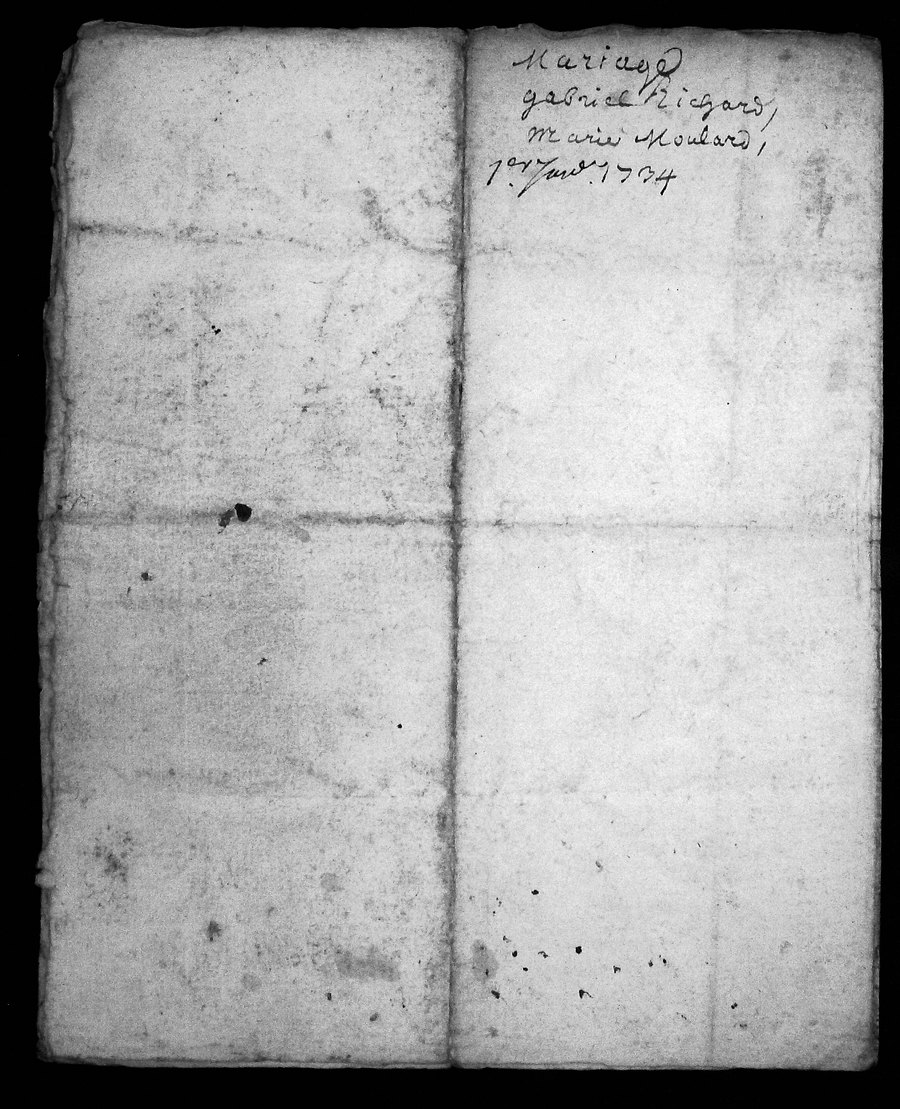 Mariage
gabriel Richard,
Marie Moulard,
1er Janvr. 1734